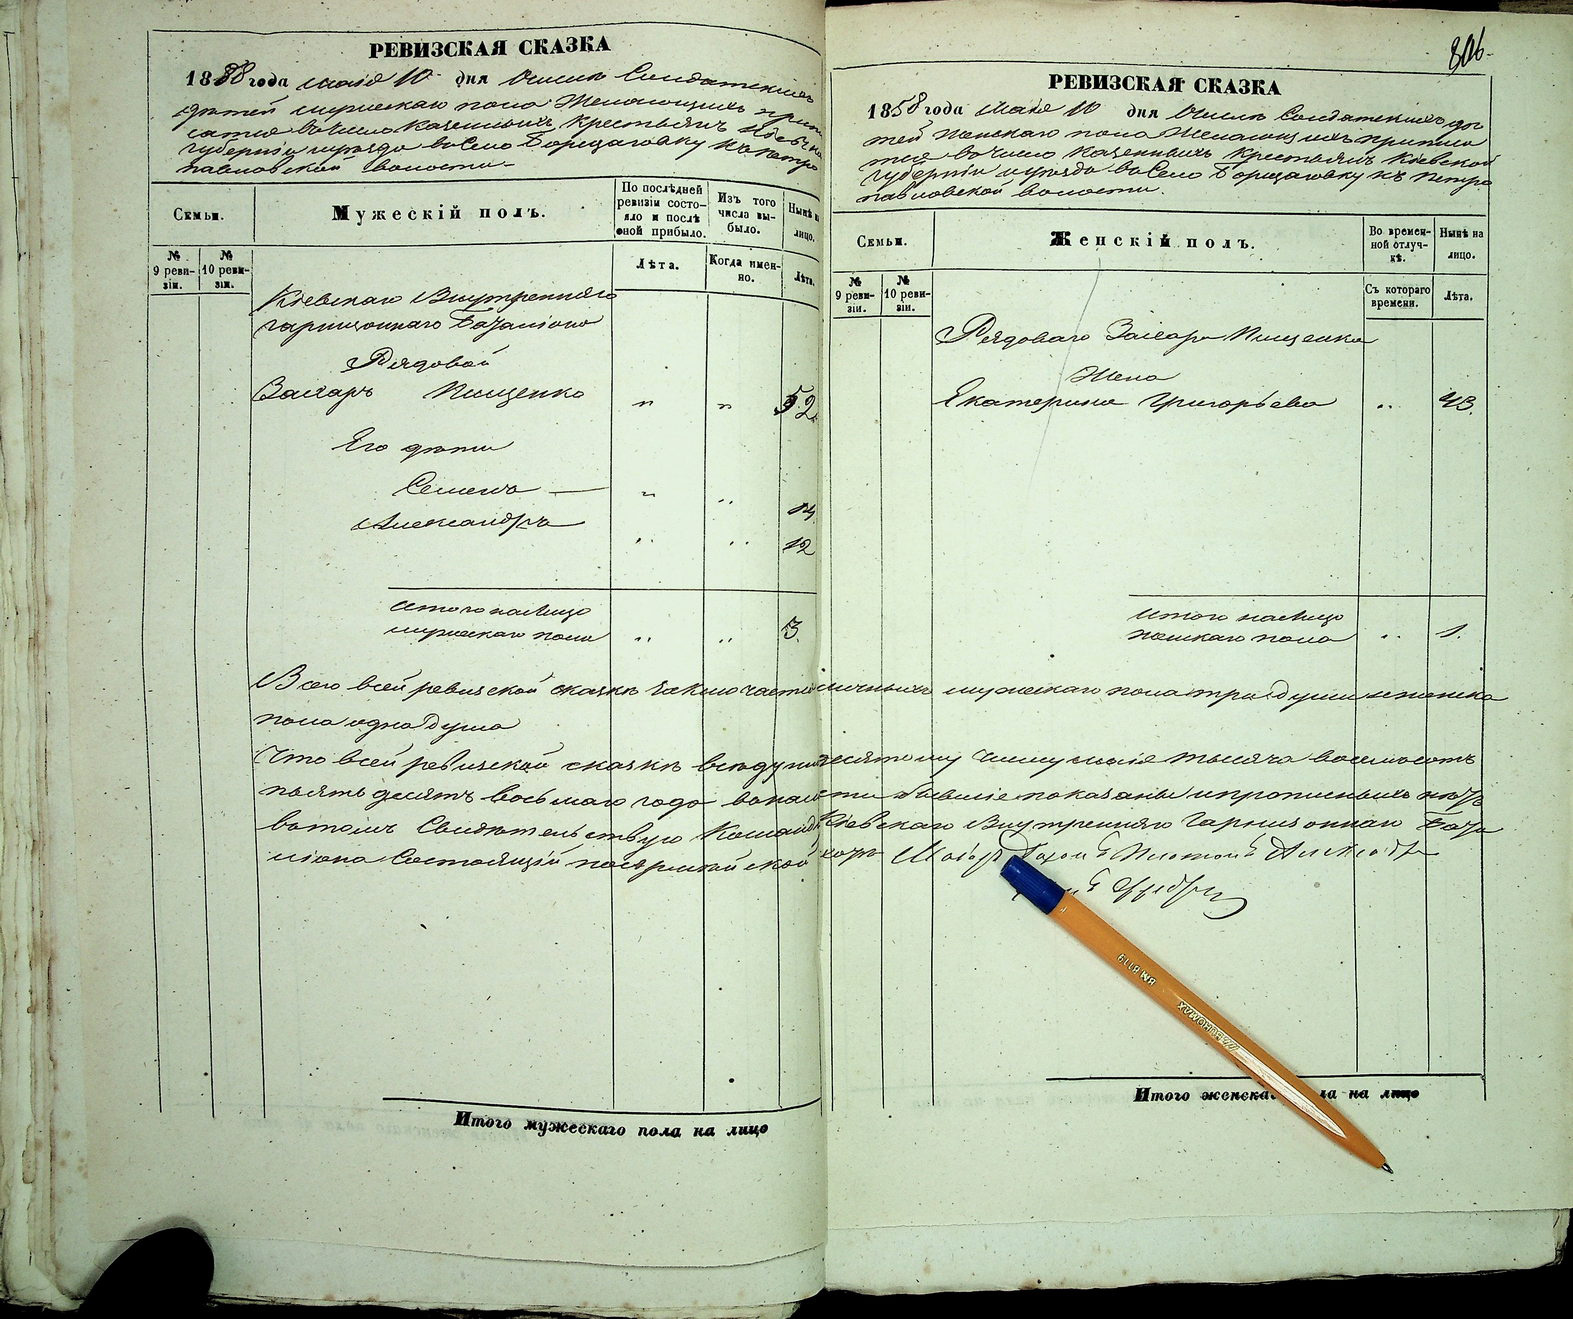 РЕВИЗСКАЯ СКАЗКА
1858 года маія 10 дня О числѣ Солдатскихъ
дѣтей мужескаго пола Желающихъ припи
саться въ число казенныхъ крестьянъ Кіевской
губерніи и уѣзда въ Село Борщаговку къ Петро
павловской волости
Семьи.
Мужескій полъ.
По послѣдней ревизіи состо-яло и послѣ оной прибыло.
Изъ того числа вы-было.
Нынѣ на лицо.
№ 9 реви-зіи.
№ 10 реви-зіи.
Лѣта.
Когда имен-но.
Лѣта.
Кіевскаго Внутренняго
гарнизоннаго Баталіона
Рядовой
Захаръ Пищенко " " 52.
Его дѣти
Семенъ — " " 14
Александръ " " 12
Итого на лицо
мужескаго пола " " 3.
Итого мужескаго пола на лицо
806.
РЕВИЗСКАЯ СКАЗКА
1858 года маія 10 дня О числѣ Солдатскихъ дѣ
тей женскаго пола Желающихъ приписа
ться въ число казенныхъ крестьянъ Кіевской
губерніи и уѣзда въ Село Борщаговку къ Петро
павловской волости.
Семьи.
Женскій полъ.
Во времен-ной отлуч-кѣ.
Нынѣ на лицо.
№ 9 реви-зіи.
№ 10 реви-зіи.
Съ котораго времени.
Лѣта.
Рядоваго Захара Пищенка
Жена
Екатерина Григорьева " 43.
Итого на лицо
женскаго пола " 1.
Всего в сей ревизской сказкѣ заключается наличныхъ мужеска пола три души и женска
пола одна душа
Что в сей ревизской сказкѣ всѣ души десятому числу маія тысяча восемьсотъ
пятьдесятъ восьмаго года показаны и прописныхъ нѣтъ
въ томъ Свидѣтельствую Кіевскаго Внутренняго Гарнизоннаго Бата
ліона Состоящій Маіоръ
Итого женскаго пола на лицо
ВМ 8119